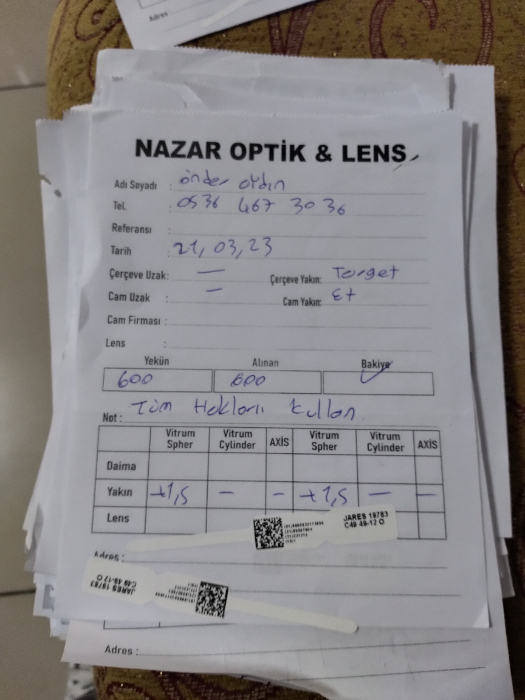 Adres
NAZAR OPTİK & LENS
Adı Soyadı : önder aydın
Tel. : 0536 467 30 36
Referansı :
Tarih : 21,03,23
Çerçeve Uzak: — Çerçeve Yakın: Target
Cam Uzak : — Cam Yakın: Et
Cam Firması :
Lens :
Yekün Alınan Bakiye
600 600
Not : Tüm Hakları Kullan
Vitrum Spher Vitrum Cylinder AXİS Vitrum Spher Vitrum Cylinder AXİS
Daima
Yakın +1,5 — — +1,5 — —
Lens
JARES 19783
C49 49-12 O
Adres :
JARES 19783
C49 49-12 O
Adres :